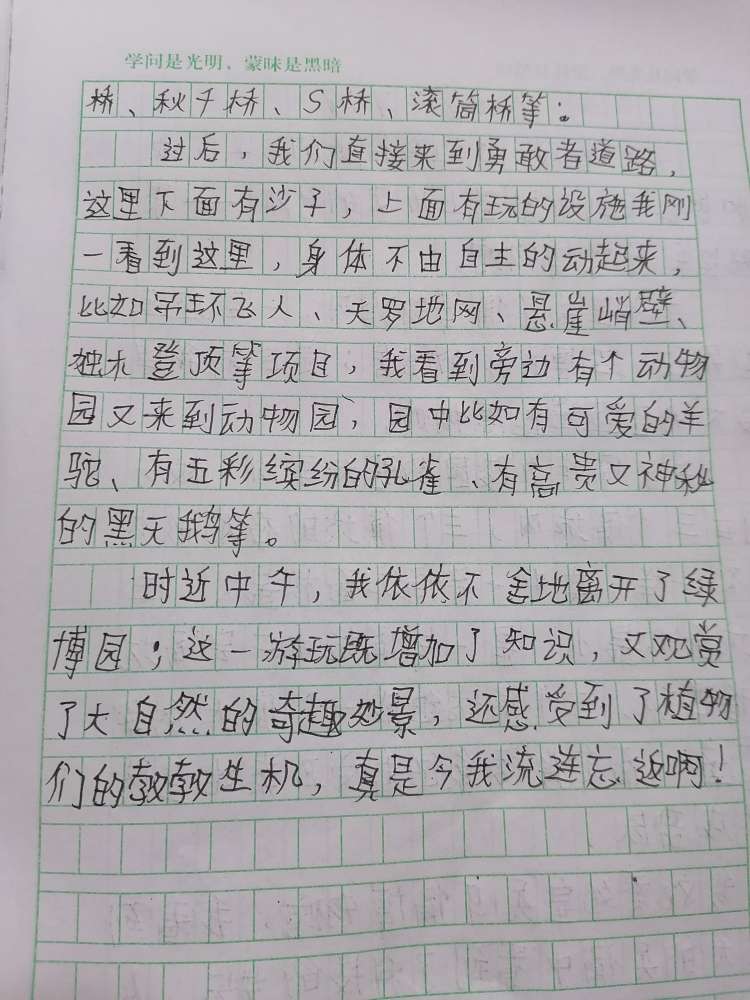 学问是光明，蒙昧是黑暗
桥、秋千桥、S桥、滚筒桥等。
过后，我们直接来到勇敢者道路，
这里下面有沙子，上面有玩的设施我刚
一看到这里，身体不由自主的动起来，
比如吊环飞人、天罗地网、悬崖峭壁、
独木登顶等项目，我看到旁边有个动物
园又来到动物园，园中比如有可爱的羊
驼、有五彩缤纷的孔雀、有高贵又神秘
的黑天鹅等。
时近中午，我依依不舍地离开了绿
博园；这一游玩既增加了知识，又观赏
了大自然的奇趣妙景，还感受到了植物
们的勃勃生机，真是今我流连忘返啊！